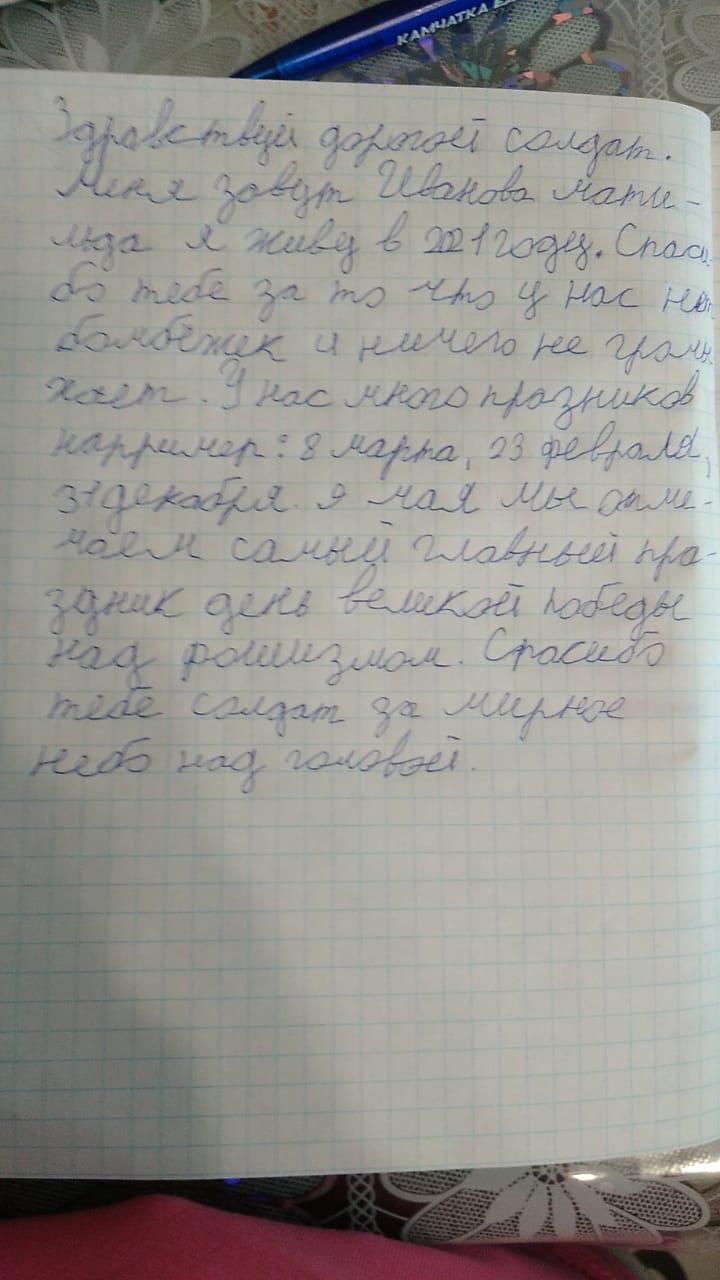 КАМЧАТКА
Здравствуй дорогой солдат.
Меня зовут Иванова мати-
льда я живу в 2021 году. Спаси
бо тебе за то что у нас нет
бомбёжек и ничего не громы
хает. У нас много празников
например: 8 марта, 23 февраля,
31 декабря. 9 мая мы отме-
чаем самый главный пра-
здник день великой победы
над фошизмом. Спасибо
тебе солдат за мирное
небо над головой.